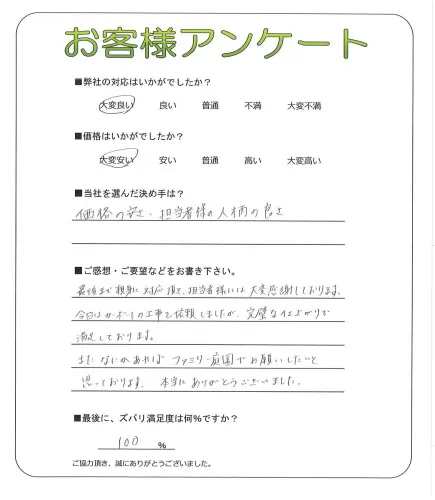 お客様アンケート
■弊社の対応はいかがでしたか？
大変良い 良い 普通 不満 大変不満
■価格はいかがでしたか？
大変安い 安い 普通 高い 大変高い
■当社を選んだ決め手は？
価格の安さ・担当者様の人柄の良さ
■ご感想・ご要望などをお書き下さい。
最後まで親身に対応頂き、担当者様には大変感謝しております。
今回はカーポートの工事を依頼しましたが、完璧な仕上がりで
満足しております。
またなにかあれば ファミリー庭園でお願いしたいと
思っております。本当にありがとうございました。
■最後に、ズバリ満足度は何%ですか？
100 %
ご協力頂き、誠にありがとうございました。